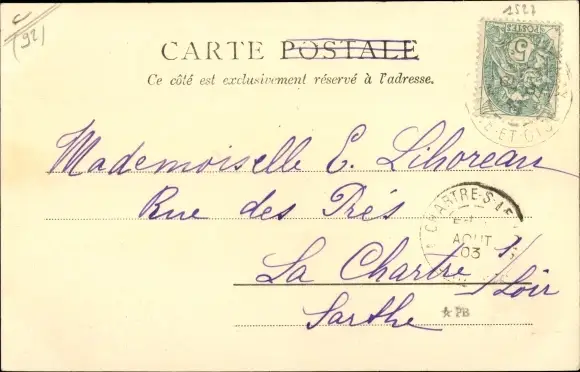 1527
(92)
CARTE POSTALE
Ce côté est exclusivement réservé à l'adresse.
5
POSTES
ET-OI
Mademoiselle E. Lihoreau
Rue des Prés
CHARTRE-S-LE
AOUT
03
La Chartre s/Loir
Sarthe
PB